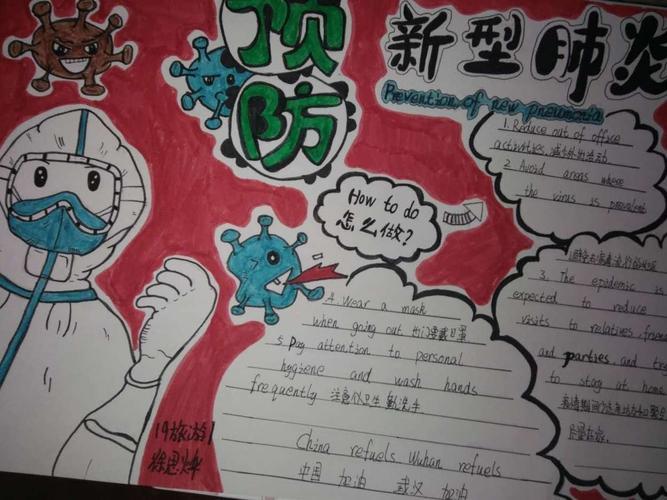 预防
新型肺炎
Prevention of new pneumonia
1. Reduce out of office
activities, 减少外出活动
2. Avoid areas where
the virus is prevalent
3. The epidemic is
expected to reduce
visits to relatives, frien
and parties and try
to stay at home
How to do
怎么做?
4. Wear a mask
when going out 出门要戴口罩
5. Pay attention to personal
hygiene and wash hands
frequently 注意个人卫生 勤洗手
China refuels Wuhan refuels
中国 加油 武汉 加油
19旅游1